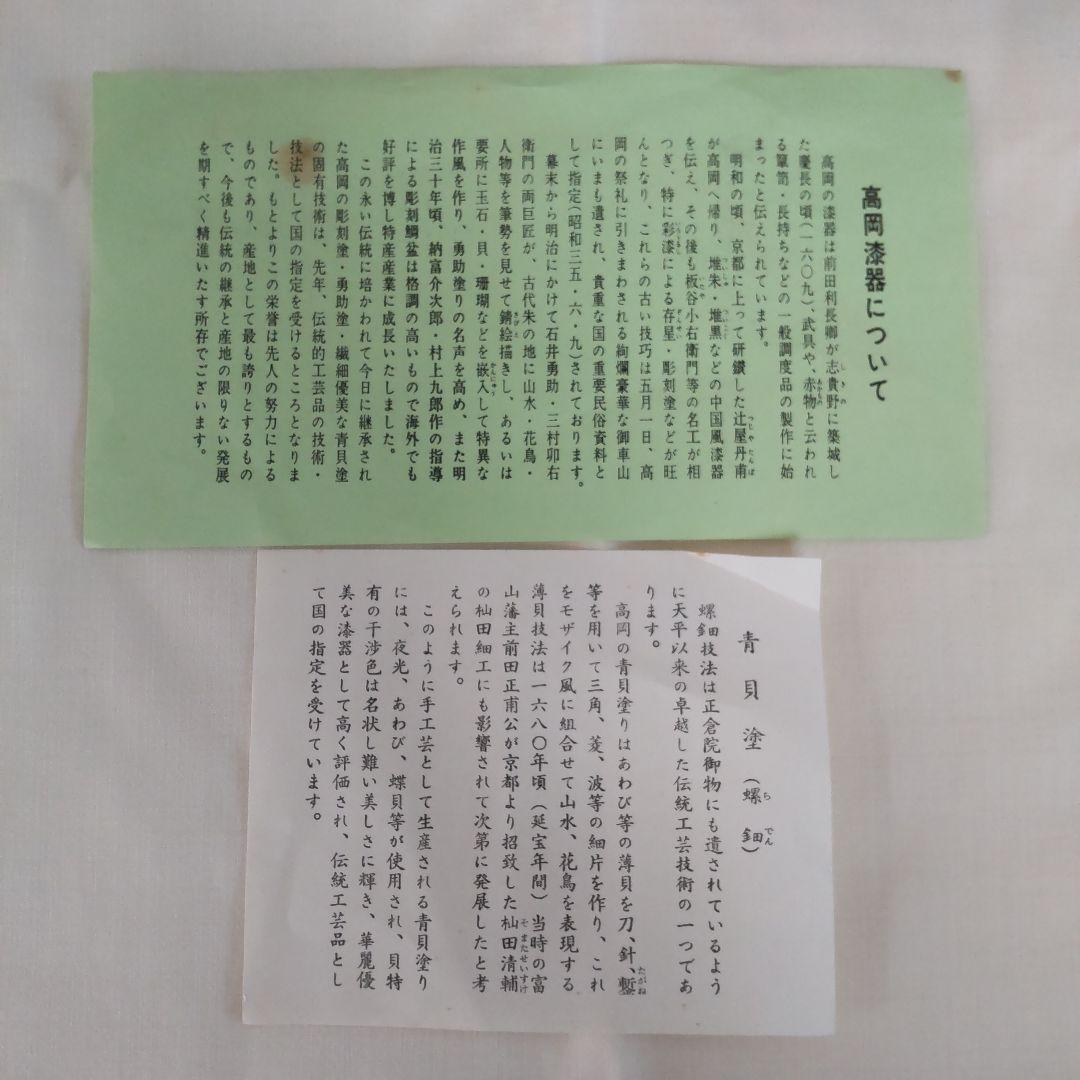 高岡漆器について
高岡の漆器は前田利長卿が志貴野に築城し
た慶長の頃(一六〇九)、武具や、赤物と云われ
る簞笥・長持ちなどの一般調度品の製作に始
まったと伝えられています。
明和の頃、京都に上って研鑽した辻屋丹甫
が高岡へ帰り、堆朱・堆黒などの中国風漆器
を伝え、その後も板谷小右衛門等の名工が相
つぎ、特に彩漆による存星・彫刻塗などが旺
んとなり、これらの古い技巧は五月一日、高
岡の祭礼に引きまわされる絢爛豪華な御車山
にいまも遺され、貴重な国の重要民俗資料と
して指定(昭和三五・六・九)されております。
幕末から明治にかけて石井勇助・三村卯右
衛門の両巨匠が、古代朱の地に山水・花鳥・
人物等を筆勢を見せて錆絵描きし、あるいは
要所に玉石・貝・珊瑚などを嵌入して特異な
作風を作り、勇助塗りの名声を高め、また明
治三十年頃、納富介次郎・村上九郎作の指導
による彫刻鯛盆は格調の高いもので海外でも
好評を博し特産産業に成長いたしました。
この永い伝統に培かわれて今日に継承され
た高岡の彫刻塗・勇助塗・繊細優美な青貝塗
の固有技術は、先年、伝統的工芸品の技術・
技法として国の指定を受けるところとなりま
した。もとよりこの栄誉は先人の努力による
ものであり、産地として最も誇りとするもの
で、今後も伝統の継承と産地の限りない発展
を期すべく精進いたす所存でございます。
青貝塗(螺鈿)
螺鈿技法は正倉院御物にも遺されているよう
に天平以来の卓越した伝統工芸技術の一つであ
ります。
高岡の青貝塗りはあわび等の薄貝を刀、針、鏨
等を用いて三角、菱、波等の細片を作り、これ
をモザイク風に組合せて山水、花鳥を表現する
薄貝技法は一六八〇年頃(延宝年間)当時の富
山藩主前田正甫公が京都より招致した杣田清輔
の杣田細工にも影響されて次第に発展したと考
えられます。
このように手工芸として生産される青貝塗り
には、夜光、あわび、蝶貝等が使用され、貝特
有の干渉色は名状し難い美しさに輝き、華麗優
美な漆器として高く評価され、伝統工芸品とし
て国の指定を受けています。